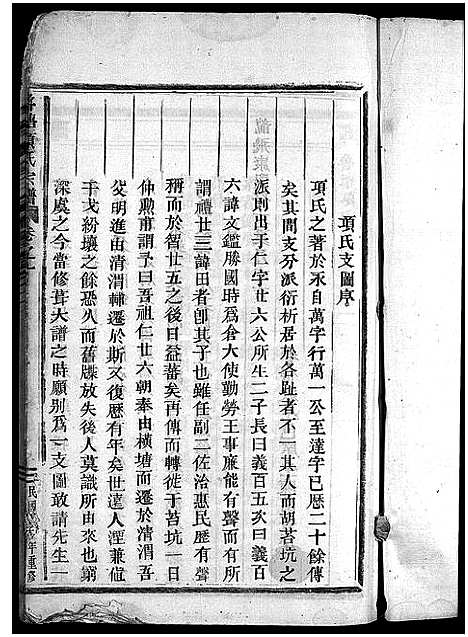 項氏支圖序
項氏之著於永自萬字行萬一公至達字已歷二十餘傳
矣其間支分派衍析居於各趾者不一其人而胡苔坑之
派則出于仁字廿六公所生二子長曰義百五次曰義百
六諱文鑑勝國時為倉大使勤勞王事廉能有聲而有所
謂禮廿三諱田者卽其子也雖任副二佐治惠民歷有聲
稱而至於智廿五之後日益蕃矣再傳而轉徙于苔坑一日
仲勲甫謂予曰吾祖仁廿六朝奉由橫塘而遷於清渭吾
父明進由清渭轉遷於斯又復歷有年矣世遠人湮兼值
干戈紛壤之餘恐久而舊牒放失後人莫識所由來也窮
深虞之今當修葺大譜之時願別為一支圖敢請先生一
項氏宗譜
民國 年重修